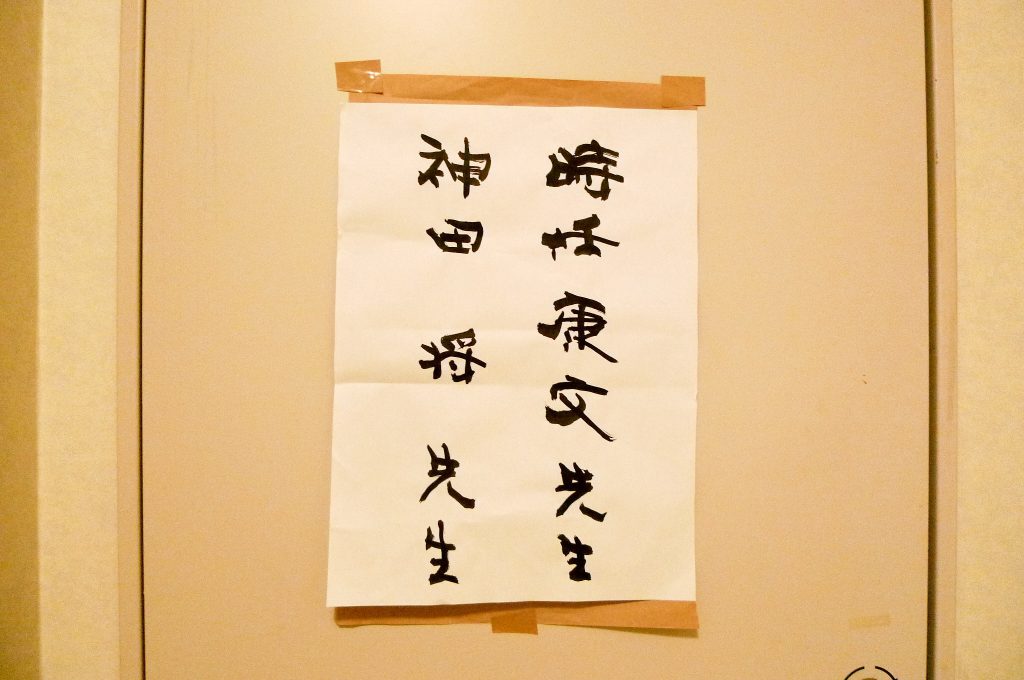 時任康文先生
神田将先生